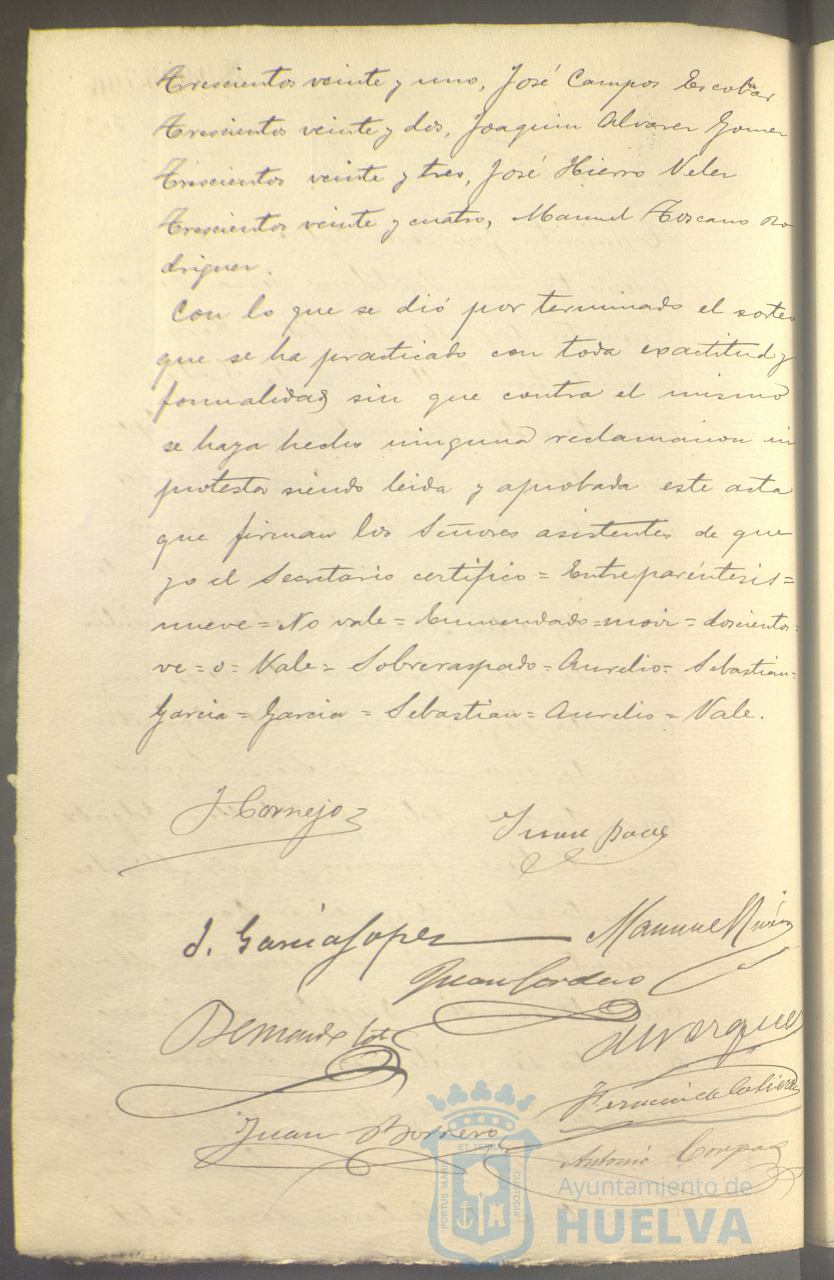 Trescientos veinte y uno, José Campos Escobar
Trescientos veinte y dos, Joaquin Alvarez Gomez
Trescientos veinte y tres, José Hierro Velez
Trescientos veinte y cuatro, Manuel Toscano Ro
driguez.
Con lo que se dió por terminado el sorteo
que se ha practicado con toda exactitud y
formalidad sin que contra el mismo
se haya hecho ninguna reclamacion ni
protesta siendo leida y aprobada este acta
que firman los Señores asistentes de que
yo el Secretario certifico = Entreparéntesis =
nueve = No vale = Enmendado = = doscientos =
ve = o = Vale = Sobreraspado = Aurelio = Sebastian =
Garcia = Garcia = Sebastian = Aurelio = Vale.
J. Cornejo
Juan
J. García Lopez
Manuel
Juan Cordero
Bernardo
Vazquez
Juan Borrero
Antonio
PORTUS MARIS ET TERRAE CUSTODIA
Ayuntamiento de
HUELVA